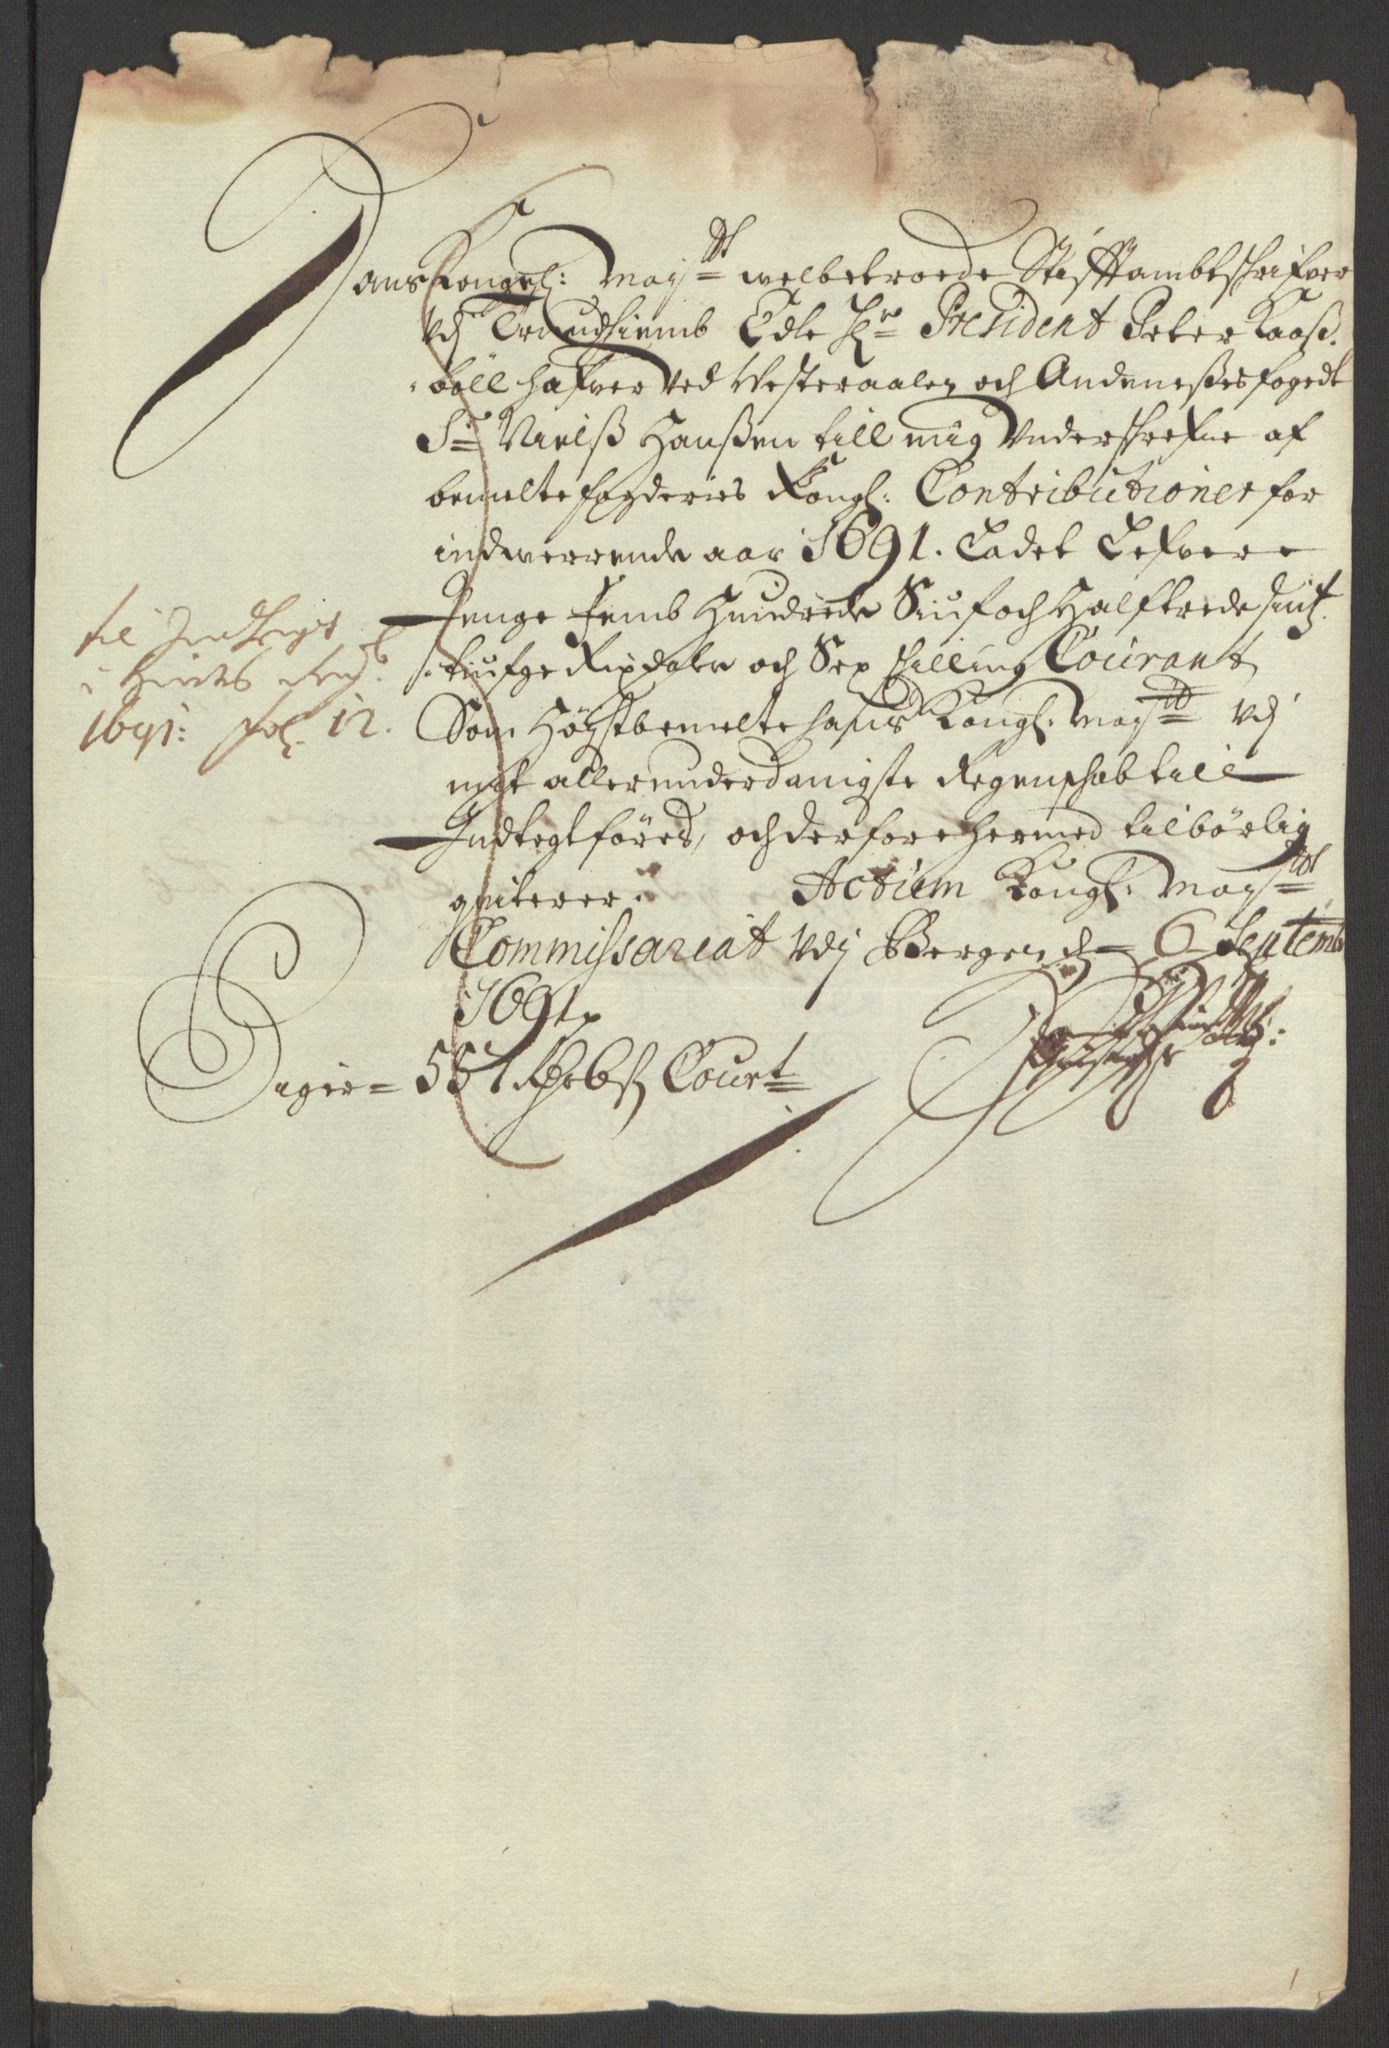 Hans Kongel: May.st welbetroede Stifftambtschrifver
Udj Trundhiemb Edle Hr. President Peter Kaaß.
böll hafver ved Westeraalen och Andeneßes fogedt
Sr. Nielß Hanßen till mig Underschrefne af
bemelte fogderies Kongl: Contributioner for
indwerrende aar 1691. Ladet Lefvere
Penge Femb Hundrede Siuf och Halftredesintz.
tiufge Rixdaler och Sex schilling Courant
Som Höystbemelte hans Kongl: Maytt. Udj
mit allerunderdanigste Regenschab till
Indtegt föres, och derfore hermed tilbörlig
qviterer. Actum Kongl: Maytt.
Commissariat Udj Bergen d. 6 Septemb
1691.
Siger 557 Rdr 6 ß Court
til Indtegt
i Hints Regb.
1691: fol. 12.
1